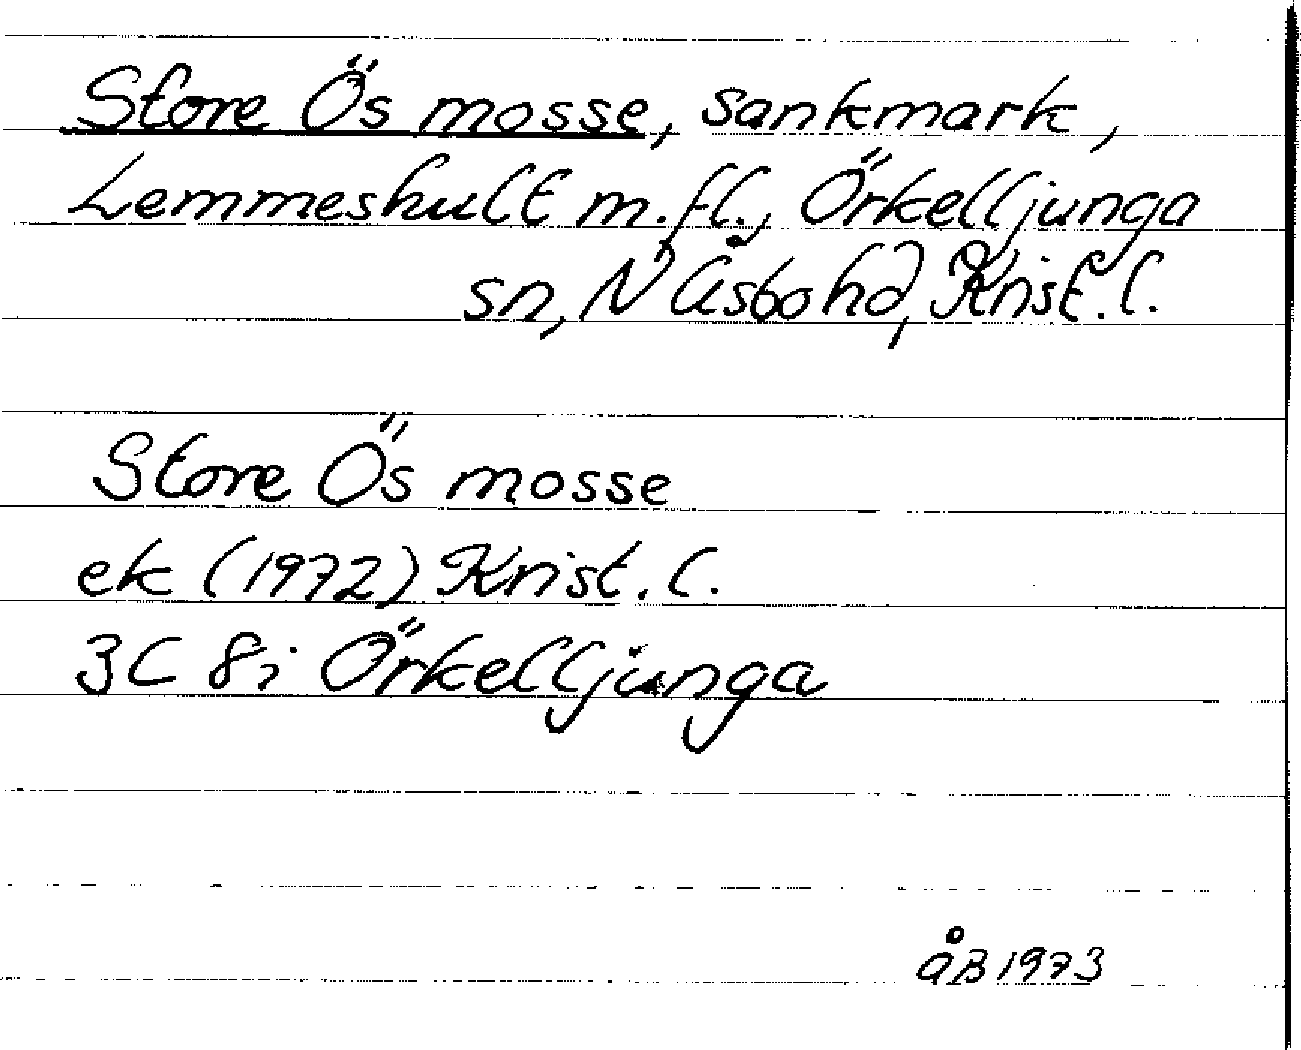 Store Ös mosse, sankmark,
Lemmeshult m.fl., Örkelljunga
sn, N Åsbo hd, Krist. l.
Store Ös mosse
ek (1972) Krist. l.
3C 8i Örkelljunga
åB 1973